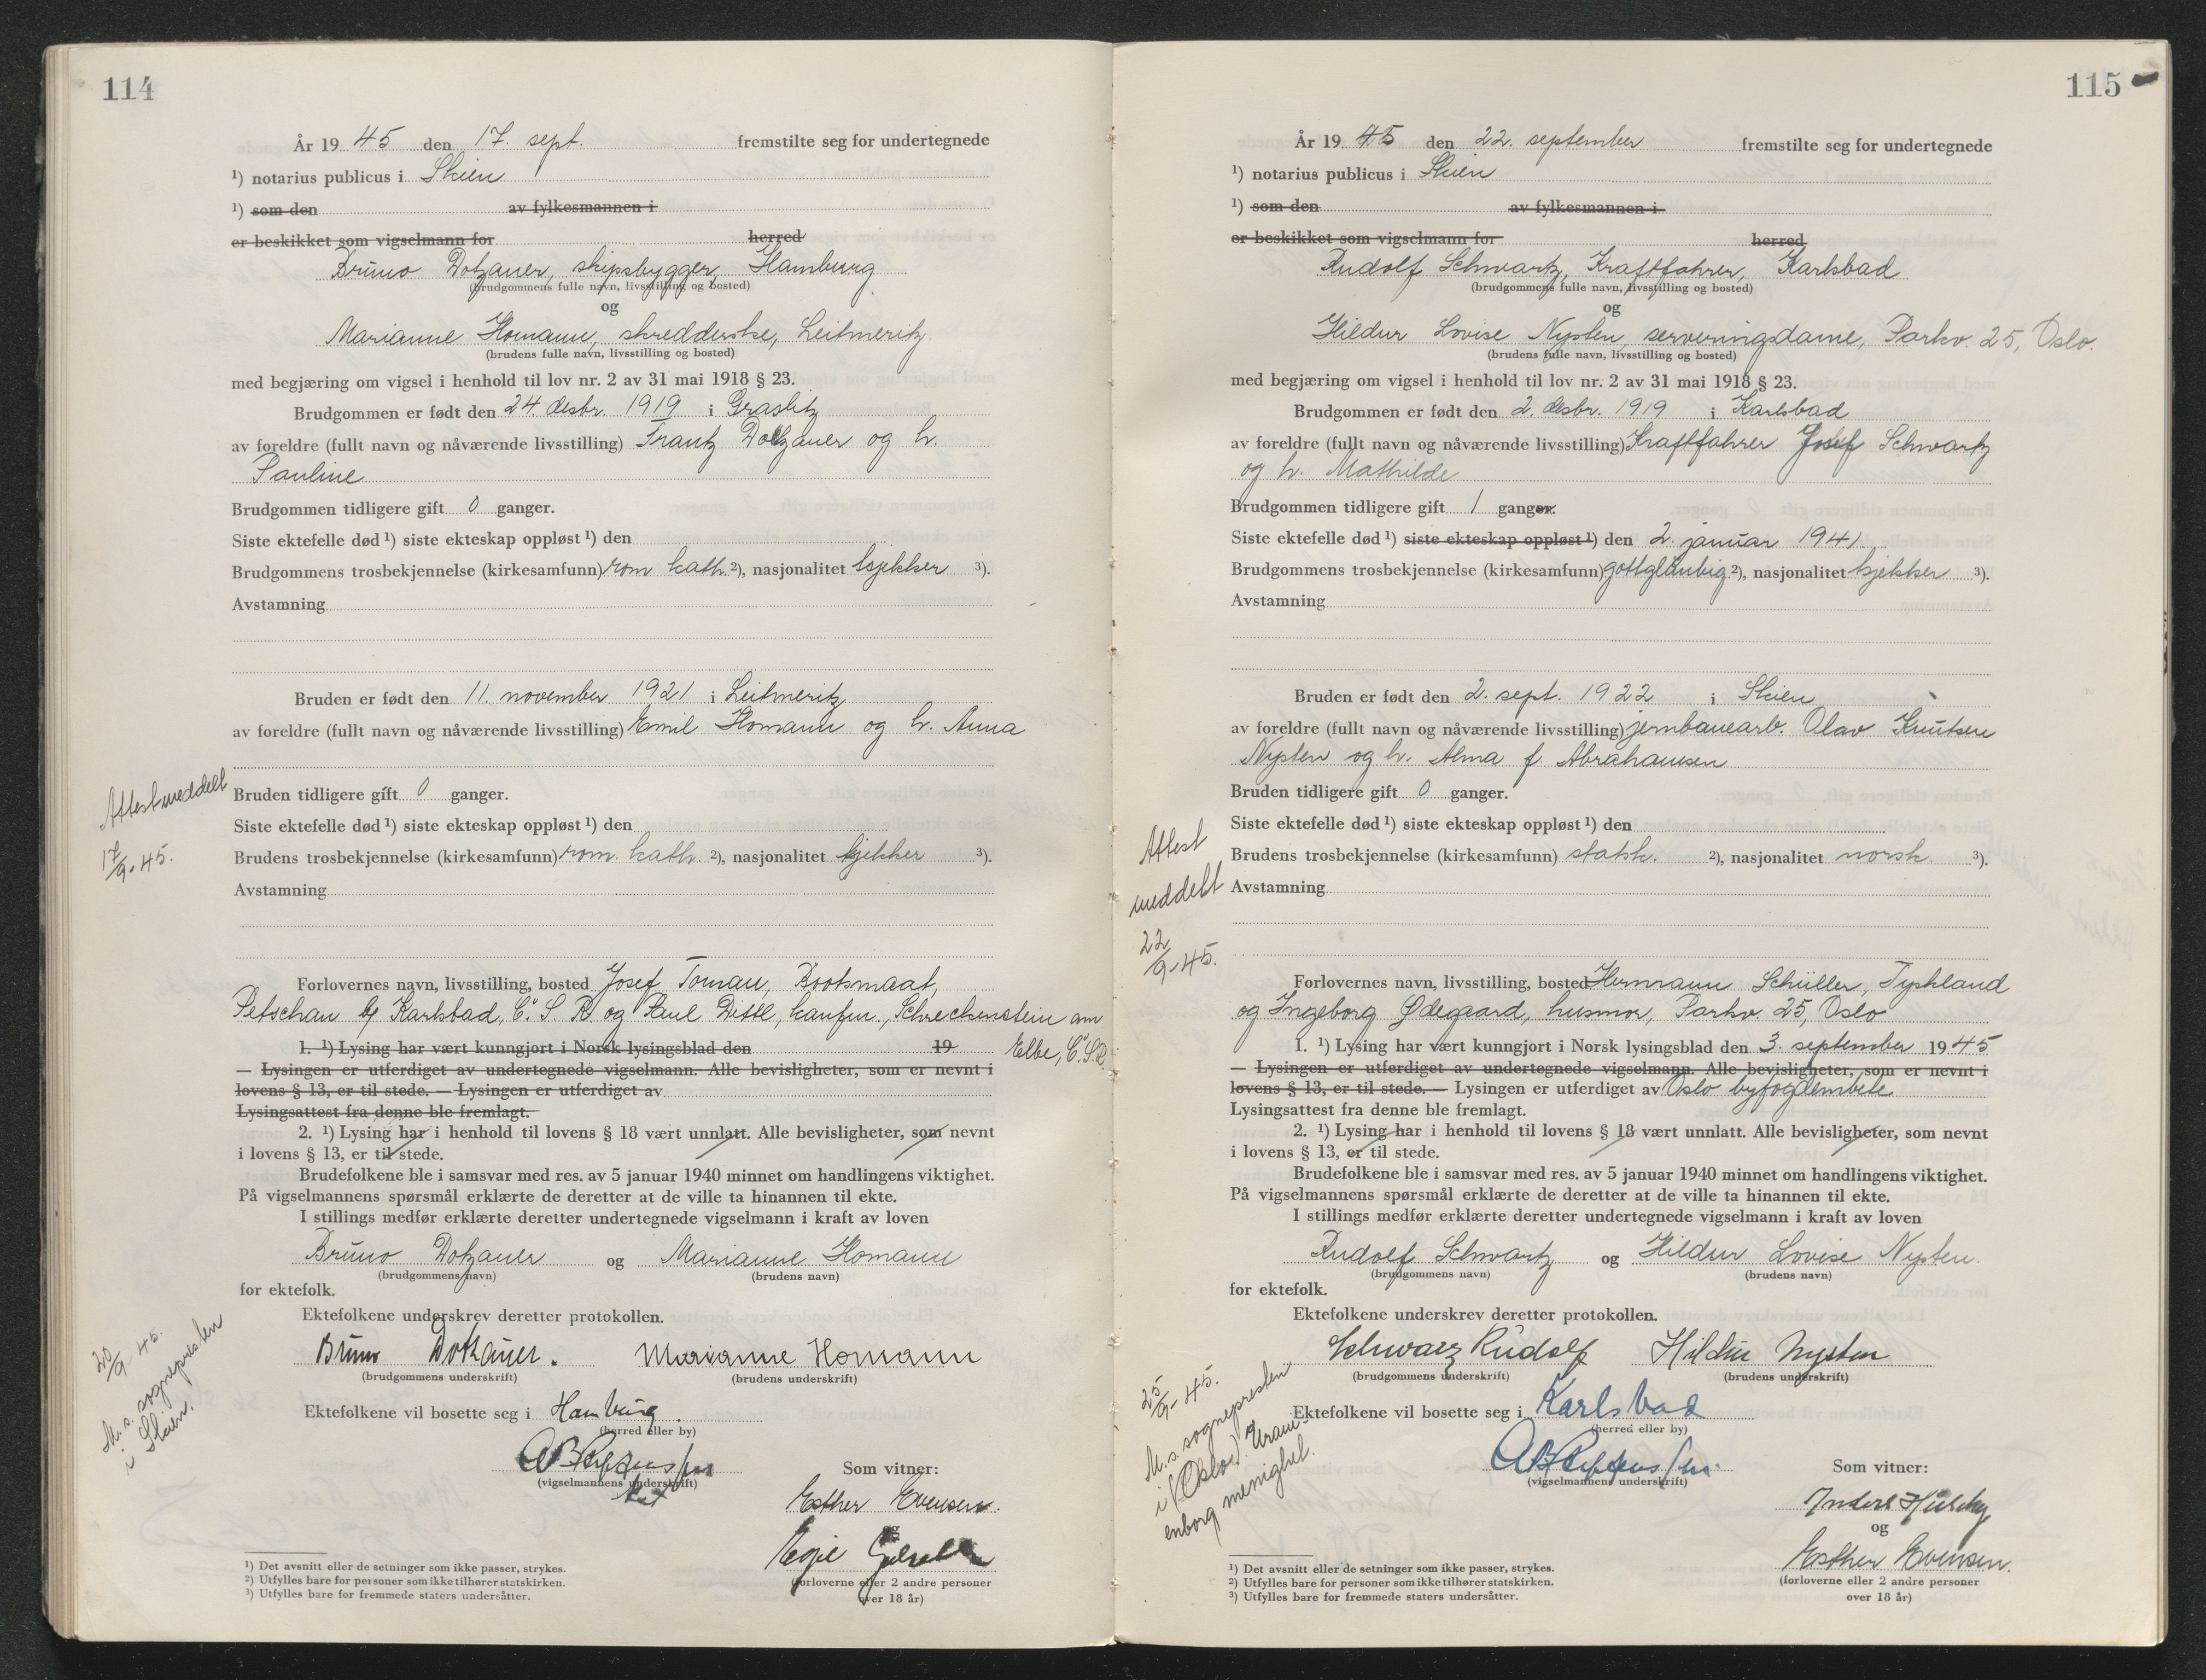 114
År 19 45 den 17. sept. fremstilte seg for undertegnede
¹) notarius publicus i Skien
¹) som den av fylkesmannen i
er beskikket som vigselmann for herred
Bruno Dotzauer, skipsbygger, Hamburg
(brudgommens fulle navn, livsstilling og bosted)
og
Marianne Homann, skredderske, Leitmeritz
(brudens fulle navn, livsstilling og bosted)
med begjæring om vigsel i henhold til lov nr. 2 av 31 mai 1918 § 23.
Brudgommen er født den 24. desbr. 1919 i Graslitz
av foreldre (fullt navn og nåværende livsstilling) Frantz Dotzauer og h.
Pauline
Brudgommen tidligere gift 0 ganger.
Siste ektefelle død ¹) siste ekteskap oppløst ¹) den
Brudgommens trosbekjennelse (kirkesamfunn) rom kath. ²), nasjonalitet tsjekker ³).
Avstamning
Bruden er født den 11. november 1921 i Leitmeritz
av foreldre (fullt navn og nåværende livsstilling) Emil Homann og h. Anna
Attest meddelt
17/9-45.
Bruden tidligere gift 0 ganger.
Siste ektefelle død ¹) siste ekteskap oppløst ¹) den
Brudens trosbekjennelse (kirkesamfunn) rom. kath. ²), nasjonalitet tsjekker ³).
Avstamning
Forlovernes navn, livsstilling, bosted Josef Toman, Bootsmaat,
Petschau b/ Karlsbad, C. S. R. og Paul Dittl, kaufm., Schreckenstein am
Elbe, C.S.R.
1. ¹) Lysing har vært kunngjort i Norsk lysingsblad den 19
— Lysingen er utferdiget av undertegnede vigselmann. Alle bevisligheter, som er nevnt i
lovens § 13, er til stede. — Lysingen er utferdiget av
Lysingsattest fra denne ble fremlagt.
2. ¹) Lysing har i henhold til lovens § 18 vært unnlatt. Alle bevisligheter, som nevnt
i lovens § 13, er til stede.
Brudefolkene ble i samsvar med res. av 5 januar 1940 minnet om handlingens viktighet.
På vigselmannens spørsmål erklærte de deretter at de ville ta hinannen til ekte.
I stillings medfør erklærte deretter undertegnede vigselmann i kraft av loven
Bruno Dotzauer og Marianne Homann
(brudgommens navn) (brudens navn)
for ektefolk.
Ektefolkene underskrev deretter protokollen.
Bruno Dotzauer. Marianne Homann
(brudgommens underskrift) (brudens underskrift)
20/9-45.
M.s. sognepresten
i Skien.
Ektefolkene vil bosette seg i Hamburg.
(herred eller by)
(vigselmannens underskrift)
Som vitner:
Esther Evensen.
og
(forloverne eller 2 andre personer
over 18 år)
¹) Det avsnitt eller de setninger som ikke passer, strykes.
²) Utfylles bare for personer som ikke tilhører statskirken.
³) Utfylles bare for fremmede staters undersåtter.
115
År 19 45 den 22. september fremstilte seg for undertegnede
¹) notarius publicus i Skien
¹) som den av fylkesmannen i
er beskikket som vigselmann for herred
Rudolf Schwartz, Kraftfahrer, Karlsbad
(brudgommens fulle navn, livsstilling og bosted)
og
Hildur Lovise Nysten, serveringsdame, Parkv. 25, Oslo.
(brudens fulle navn, livsstilling og bosted)
med begjæring om vigsel i henhold til lov nr. 2 av 31 mai 1918 § 23.
Brudgommen er født den 2. desbr. 1919 i Karlsbad
av foreldre (fullt navn og nåværende livsstilling) Kraftfahrer Josef Schwartz
og h. Mathilde
Brudgommen tidligere gift 1 ganger.
Siste ektefelle død ¹) siste ekteskap oppløst ¹) den 2. januar 1941.
Brudgommens trosbekjennelse (kirkesamfunn) gottgläubig ²), nasjonalitet tsjekker ³).
Avstamning
Bruden er født den 2. sept. 1922 i Skien
av foreldre (fullt navn og nåværende livsstilling) jernbanearb. Olav Knutsen
Nysten og h. Alma f. Abrahamsen
Bruden tidligere gift 0 ganger.
Siste ektefelle død ¹) siste ekteskap oppløst ¹) den
Brudens trosbekjennelse (kirkesamfunn) statsk. ²), nasjonalitet norsk ³).
Avstamning
Attest
meddelt
22/9-45.
Forlovernes navn, livsstilling, bosted Hermann Schüller, Tyskland
og Ingeborg Ødegaard, husmor, Parkv. 25, Oslo
1. ¹) Lysing har vært kunngjort i Norsk lysingsblad den 3. september 19 45
— Lysingen er utferdiget av undertegnede vigselmann. Alle bevisligheter, som er nevnt i
lovens § 13, er til stede. — Lysingen er utferdiget av Oslo byfogdembete
Lysingsattest fra denne ble fremlagt.
2. ¹) Lysing har i henhold til lovens § 18 vært unnlatt. Alle bevisligheter, som nevnt
i lovens § 13, er til stede.
Brudefolkene ble i samsvar med res. av 5 januar 1940 minnet om handlingens viktighet.
På vigselmannens spørsmål erklærte de deretter at de ville ta hinannen til ekte.
I stillings medfør erklærte deretter undertegnede vigselmann i kraft av loven
Rudolf Schwartz og Hildur Lovise Nysten.
(brudgommens navn) (brudens navn)
for ektefolk.
Ektefolkene underskrev deretter protokollen.
Schwarz Rudolf Hildur Nysten
(brudgommens underskrift) (brudens underskrift)
25/9-45.
M.s. sognepresten
i (Oslo). Urani-
enborg menighet.
Ektefolkene vil bosette seg i Karlsbad
(herred eller by)
(vigselmannens underskrift)
Som vitner:
og
Esther Evensen.
(forloverne eller 2 andre personer
over 18 år)
¹) Det avsnitt eller de setninger som ikke passer, strykes.
²) Utfylles bare for personer som ikke tilhører statskirken.
³) Utfylles bare for fremmede staters undersåtter.